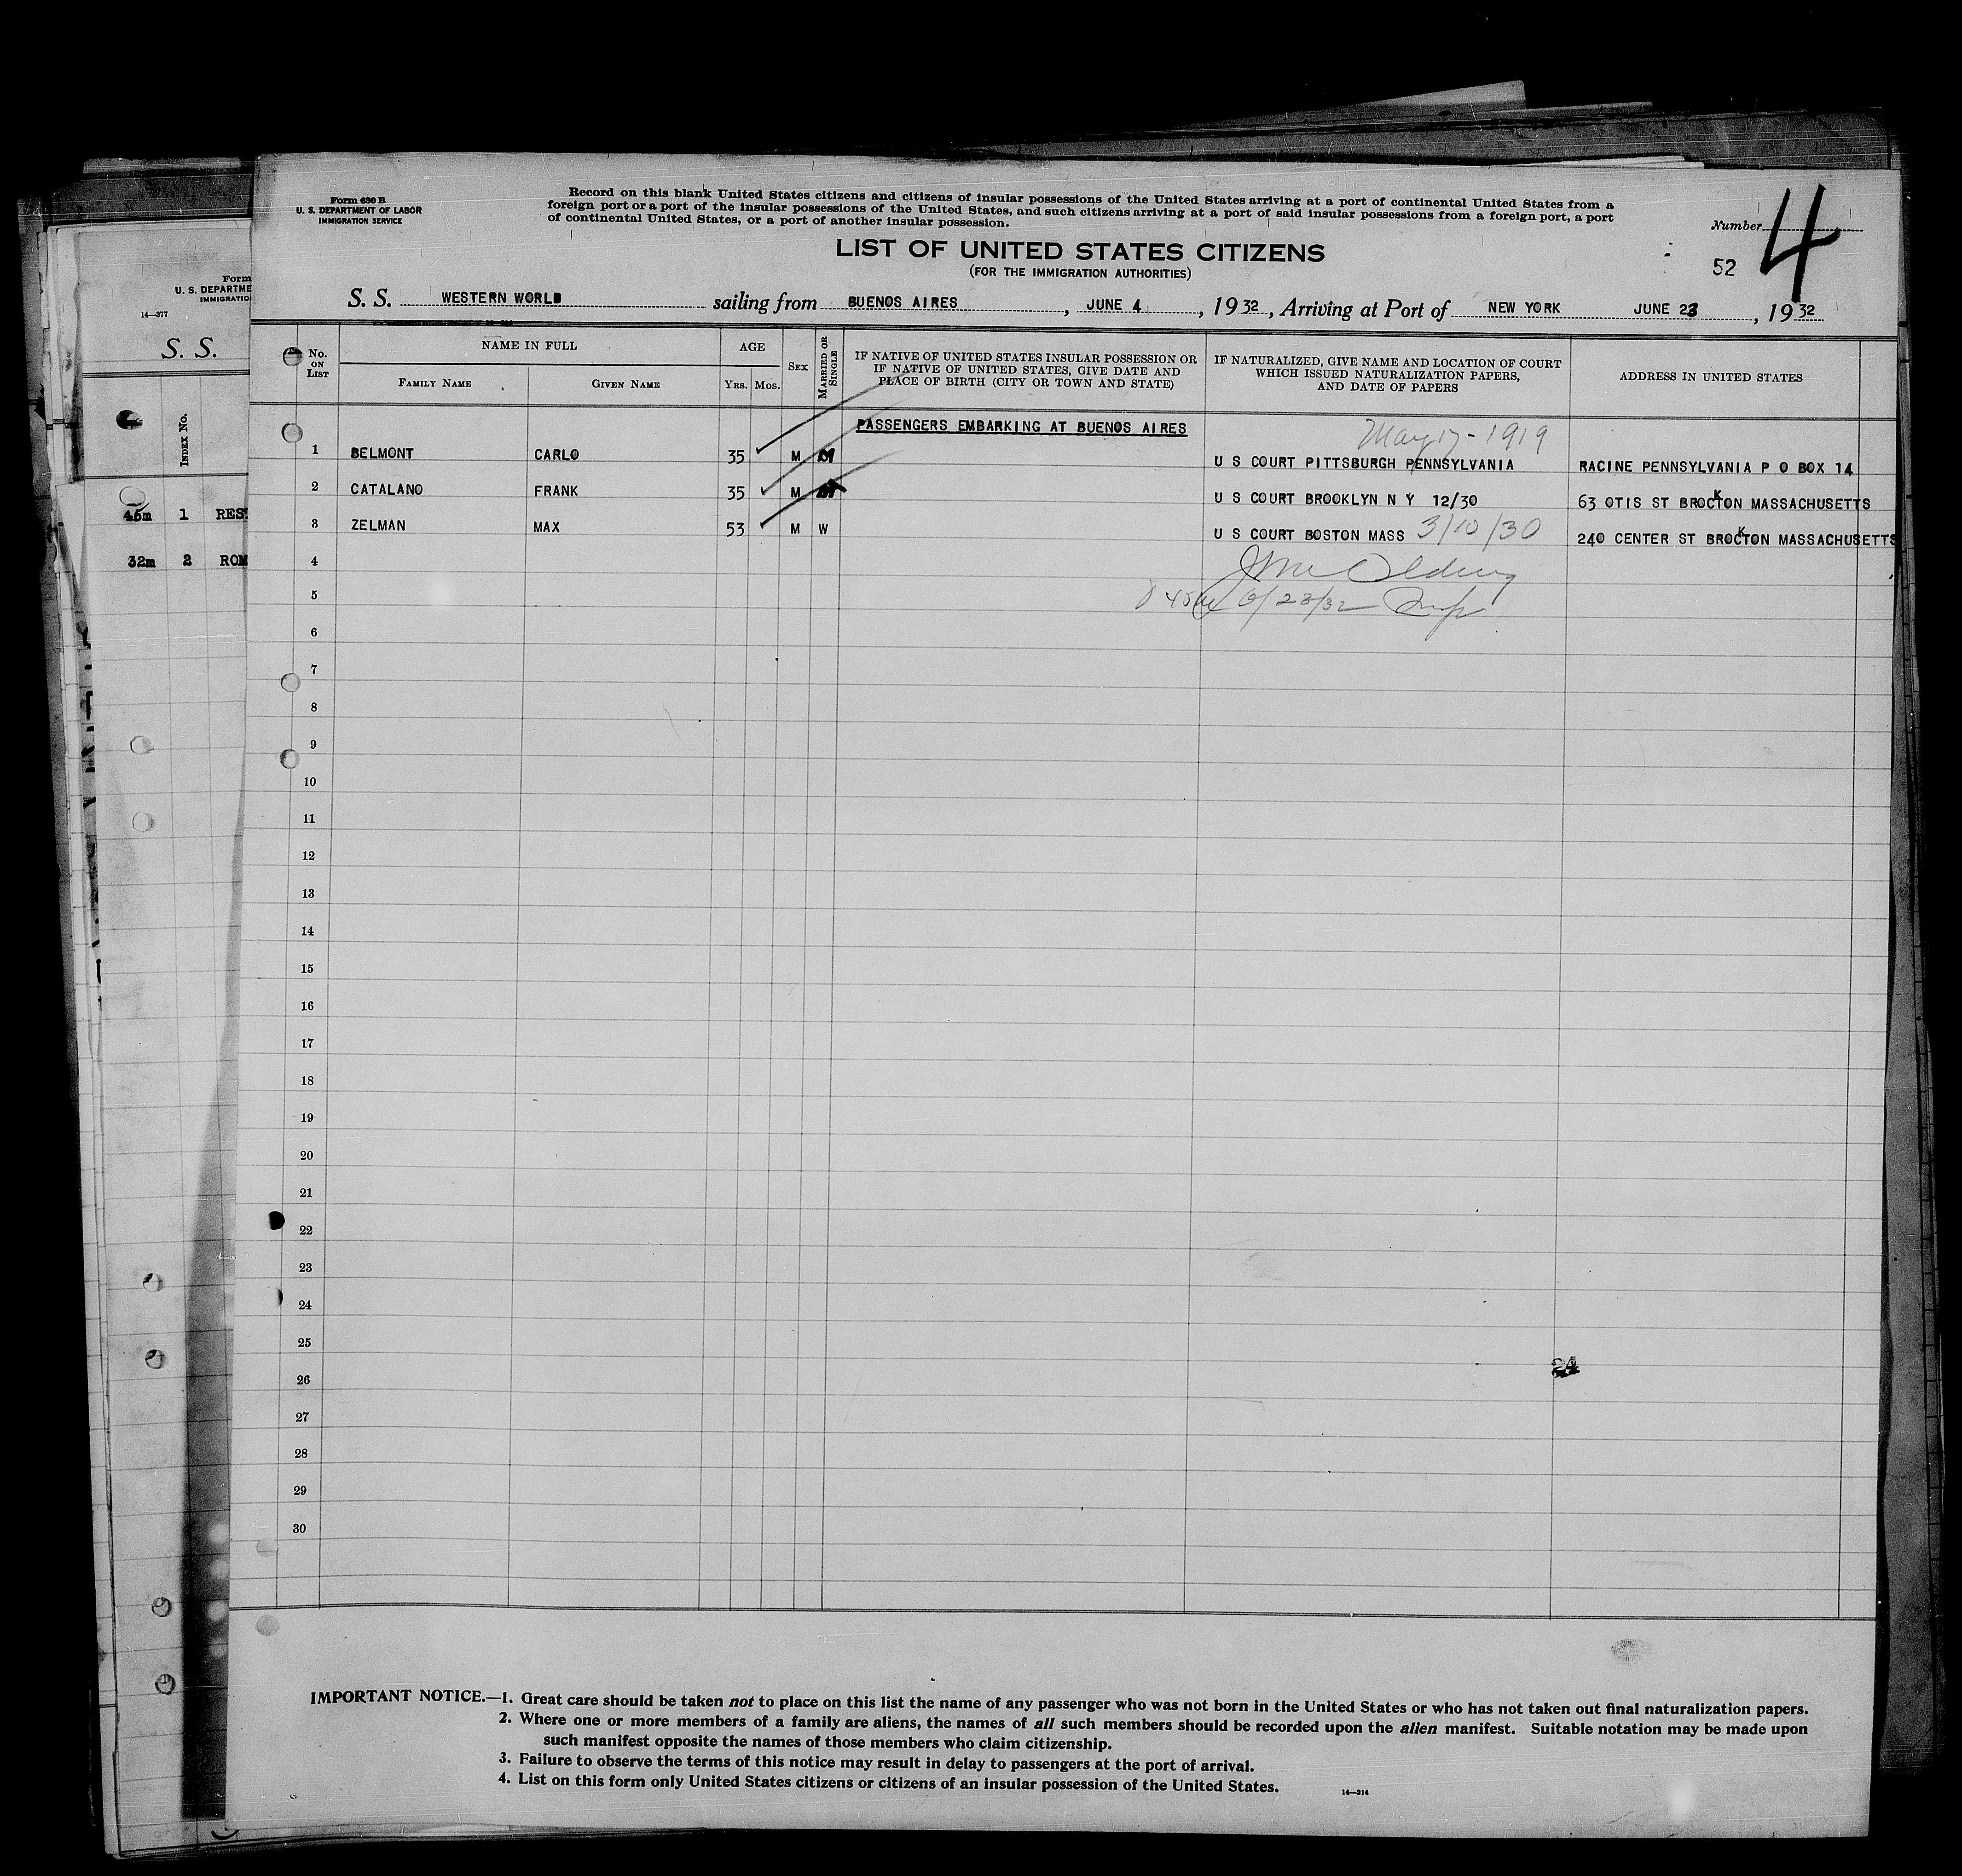 Form 630 B
U. S. DEPARTMENT OF LABOR
IMMIGRATION SERVICE
Record on this blank United States citizens and citizens of insular possessions of the United States arriving at a port of continental United States from a
foreign port or a port of the insular possessions of the United States, and such citizens arriving at a port of said insular possessions from a foreign port, a port
of continental United States, or a port of another insular possession.
Number 4
LIST OF UNITED STATES CITIZENS
(FOR THE IMMIGRATION AUTHORITIES)
52
S. S. WESTERN WORLD sailing from BUENOS AIRES, JUNE 4, 1932, Arriving at Port of NEW YORK JUNE 23, 1932
No. ON LIST
NAME IN FULL
FAMILY NAME
GIVEN NAME
AGE
YRS. MOS.
SEX
MARRIED OR SINGLE
IF NATIVE OF UNITED STATES INSULAR POSSESSION OR
IF NATIVE OF UNITED STATES, GIVE DATE AND
PLACE OF BIRTH (CITY OR TOWN AND STATE)
IF NATURALIZED, GIVE NAME AND LOCATION OF COURT
WHICH ISSUED NATURALIZATION PAPERS,
AND DATE OF PAPERS
ADDRESS IN UNITED STATES
PASSENGERS EMBARKING AT BUENOS AIRES
May 17 - 1919
1 BELMONT CARLO 35 M M U S COURT PITTSBURGH PENNSYLVANIA RACINE PENNSYLVANIA P O BOX 14
2 CATALANO FRANK 35 M U S COURT BROOKLYN N Y 12/30 63 OTIS ST BROCKTON MASSACHUSETTS
3 ZELMAN MAX 53 M W U S COURT BOSTON MASS 3/10/30 240 CENTER ST BROCKTON MASSACHUSETTS
4
5 6/23/32
6
7
8
9
10
11
12
13
14
15
16
17
18
19
20
21
22
23
24
25
24
26
27
28
29
30
IMPORTANT NOTICE.—1. Great care should be taken not to place on this list the name of any passenger who was not born in the United States or who has not taken out final naturalization papers.
2. Where one or more members of a family are aliens, the names of all such members should be recorded upon the alien manifest. Suitable notation may be made upon
such manifest opposite the names of those members who claim citizenship.
3. Failure to observe the terms of this notice may result in delay to passengers at the port of arrival.
4. List on this form only United States citizens or citizens of an insular possession of the United States.
14—314
Form
U. S. DEPARTME
IMMIGRATIO
14—377
S. S.
INDEX NO.
45m 1 RES
32m 2 ROM